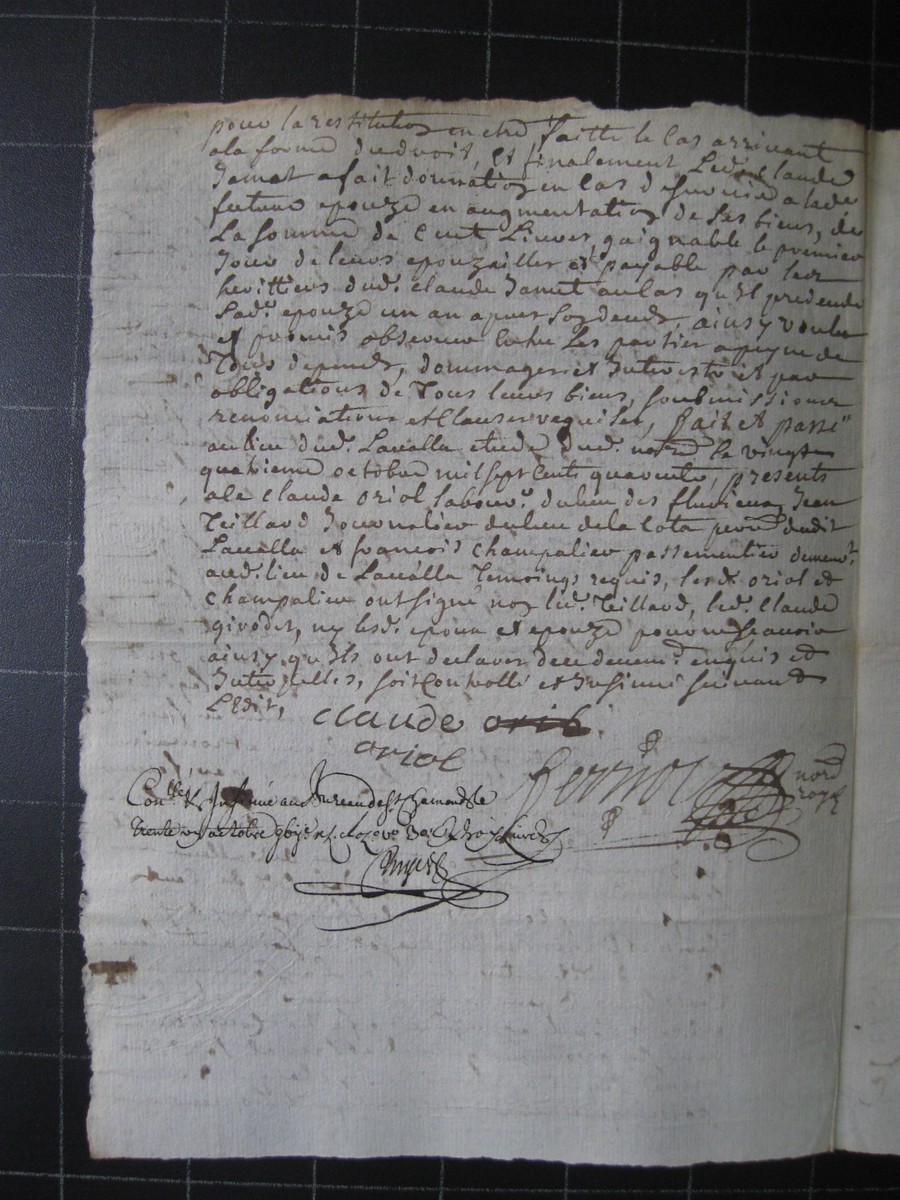 pour la restitution en etre faitte le cas arrivant
a la forme du droit, et finalement led. Claude
Jamet a fait donnation en cas de survie a lade
future epouze en augmentation de ses biens, de
La somme de Cent Livres, gaignable le premier
Jour de leurs epouzailles et payable par les
herittiers dud. Claude Jamet au cas qu'il predecede
Sad. epouze un an apres son deceds, ainsy voulu
et promis observer les partier a peyne de
Tous depends, dommages et Interests et par
obligations de Tous leurs biens, soubmissions
renonciations et Clauses requises, fait et passé
au lieu dud. Lavalla etude dud. nore le vingt
quatrieme octobre mil sept Cents quarente, presents
a ce Claude oriol labour. du lieu des fluvieux Jean
Teillard Journalier du lieu de la Cota dudit
Lavalla et francois Champalier passementier demeurt
aud. lieu de Lavalla Temoings requis, lesd. oriol et
Champalier ont signé non led. Teillard, led. Claude
girodet, ny lesd. epoux et epouze pour ne sçavoir
ainsy qu'ils ont declaré de ce deuem. enquis et
Interpelles, soit Controllé et Insinué suivant
L'Edit,
Claude oriol
oriol
nore
royl
Con.llé & Insinué au Bureau de St Chamond le
trente un octobre